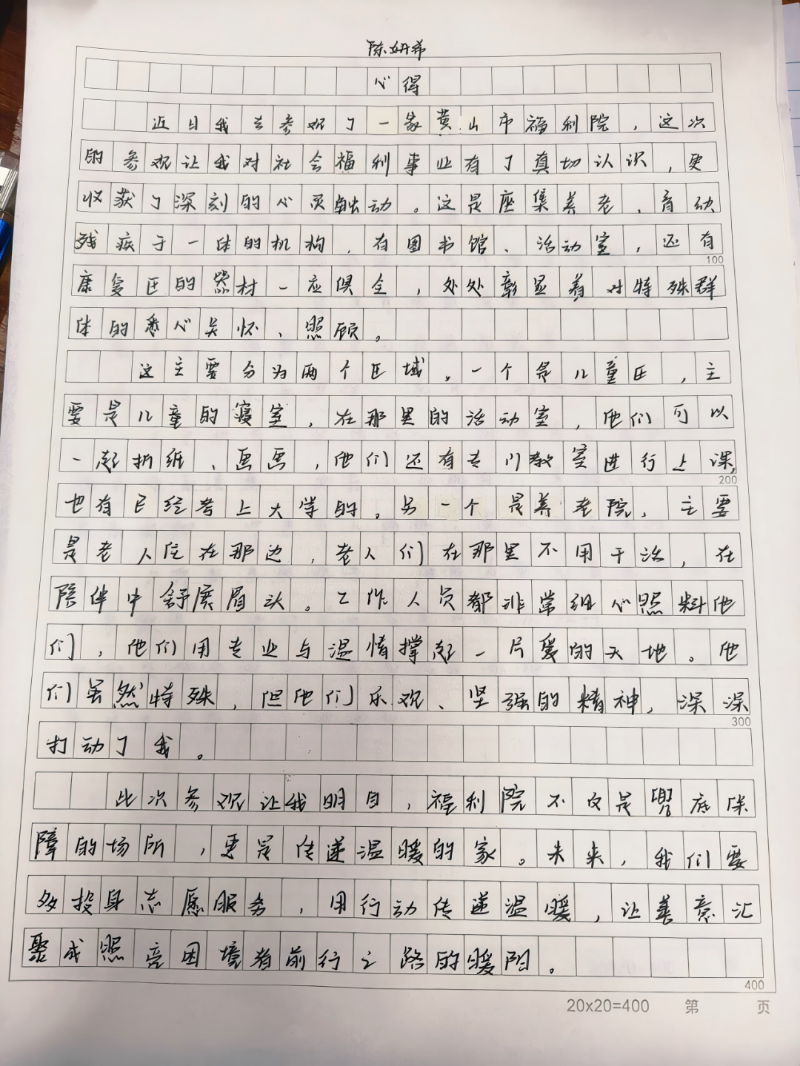 陈妍希
心得
近日我去参观了一家黄山市福利院，这次
的参观让我对社会福利事业有了真切认识，更
收获了深刻的心灵触动。这是座集养老、育幼
残疾于一体的机构，有图书馆、活动室，还有
100
康复区的器材一应俱全，处处彰显着对特殊群
体的悉心关怀、照顾。
这主要分为两个区域。一个是儿童区，主
要是儿童的寝室，在那里的活动室，他们可以
一起折纸、画画，他们还有专门教室进行上课，
200
也有已经考上大学的。另一个是养老院，主要
是老人住在那边，老人们在那里不用干活，在
陪伴中舒展眉头。工作人员都非常细心照料他
们，他们用专业与温情撑起一片爱的天地。他
们虽然特殊，但他们乐观、坚强的精神，深深
300
打动了我。
此次参观让我明白，福利院不仅是兜底保
障的场所，更是传递温暖的家。未来，我们要
多投身志愿服务，用行动传递温暖，让善意汇
聚成照亮困境者前行之路的暖阳。
400
20x20=400 第 页